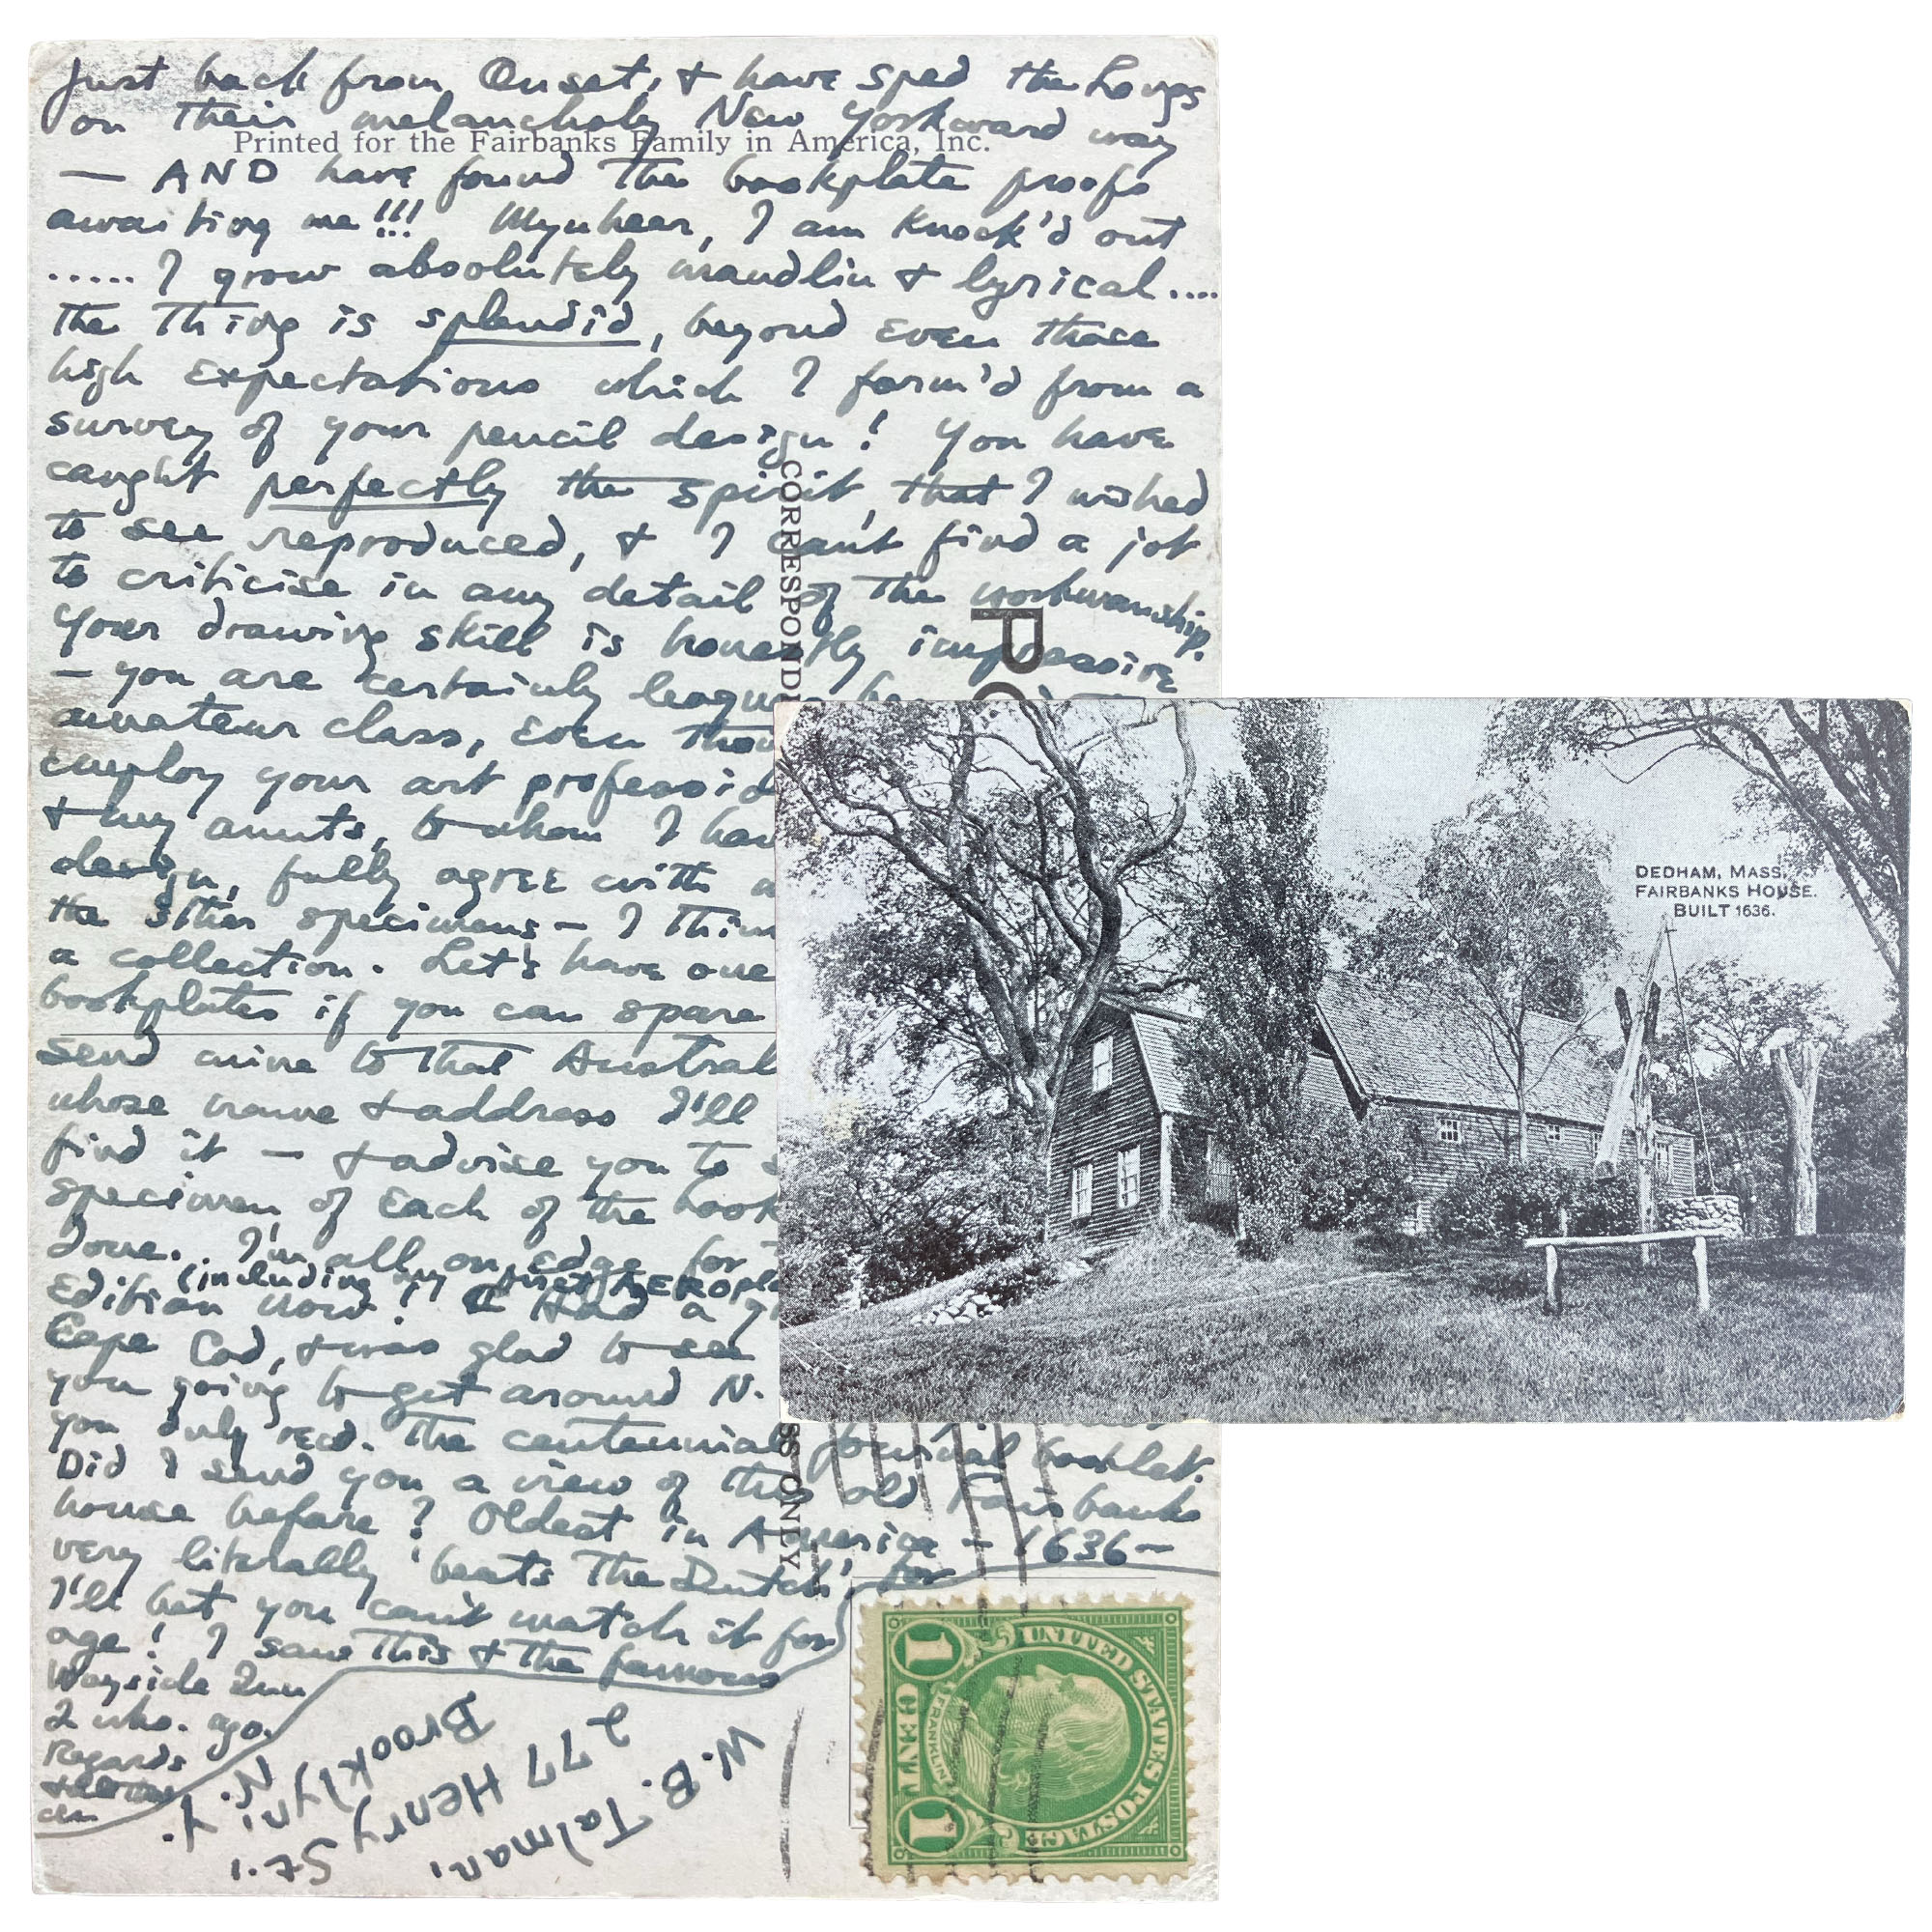 Just back from Onset, & have sped the Longs
on their melancholy New Yorkward way
Printed for the Fairbanks Family in America, Inc.
— AND have found the bookplate proofs
awaiting me!!! Mynheer, I am knock'd out
..... I grow absolutely maudlin & lyrical....
the thing is splendid, beyond even those
high expectations which I form'd from a
survey of your pencil design! You have
caught perfectly the spirit that I wished
to see reproduced, & I can't find a jot
to criticise in any detail of the workmanship.
Your drawing skill is honestly impressive
— you are certainly leagu
amateur class, even thou
employ your art professio
& my aunts, to whom I hav
design, fully agree with
the other specimens — I thin
a collection. Let's have one
bookplates if you can spare
send mine to that Austral
whose name & address I'll
find it — & advise you to s
specimen of each of the book
done.. I'm all on edge for
(including my first AEROPLA
edition now! Had a
Cape Cod, & was glad to see
you going to get around N.
you duly recd. the centennial Journal booklet.
Did I send you a view of this old Fairbanks
house before? Oldest in America — 1636 —
very literally 'beats the Dutch', for
I'll bet you can't match it for
age! I saw this & the famous
Wayside Inn
2 wks. ago.
Regards
W. B. Talman,
277 Henry St.,
Brooklyn, N. Y.
CORRESPONDE
PO
SS ONLY
UNITED STATES POSTAGE
FRANKLIN
1 CENT 1
DEDHAM, MASS.
FAIRBANKS HOUSE.
BUILT 1636.